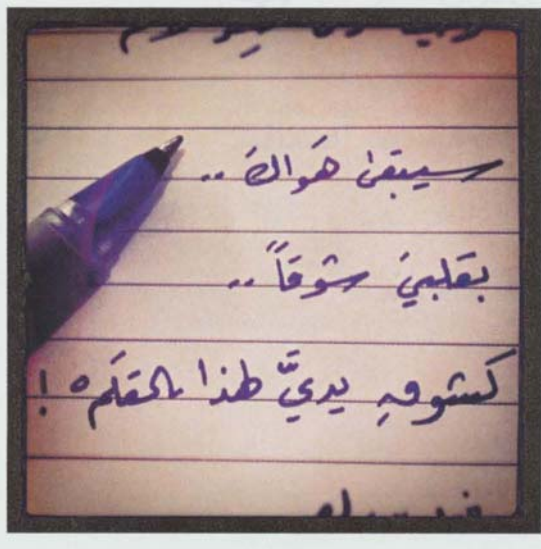 سيبقىٰ هَواكَ ..
بقلبيَ شوقاً ..
كشوقِ يديَّ لهذا القلَم !